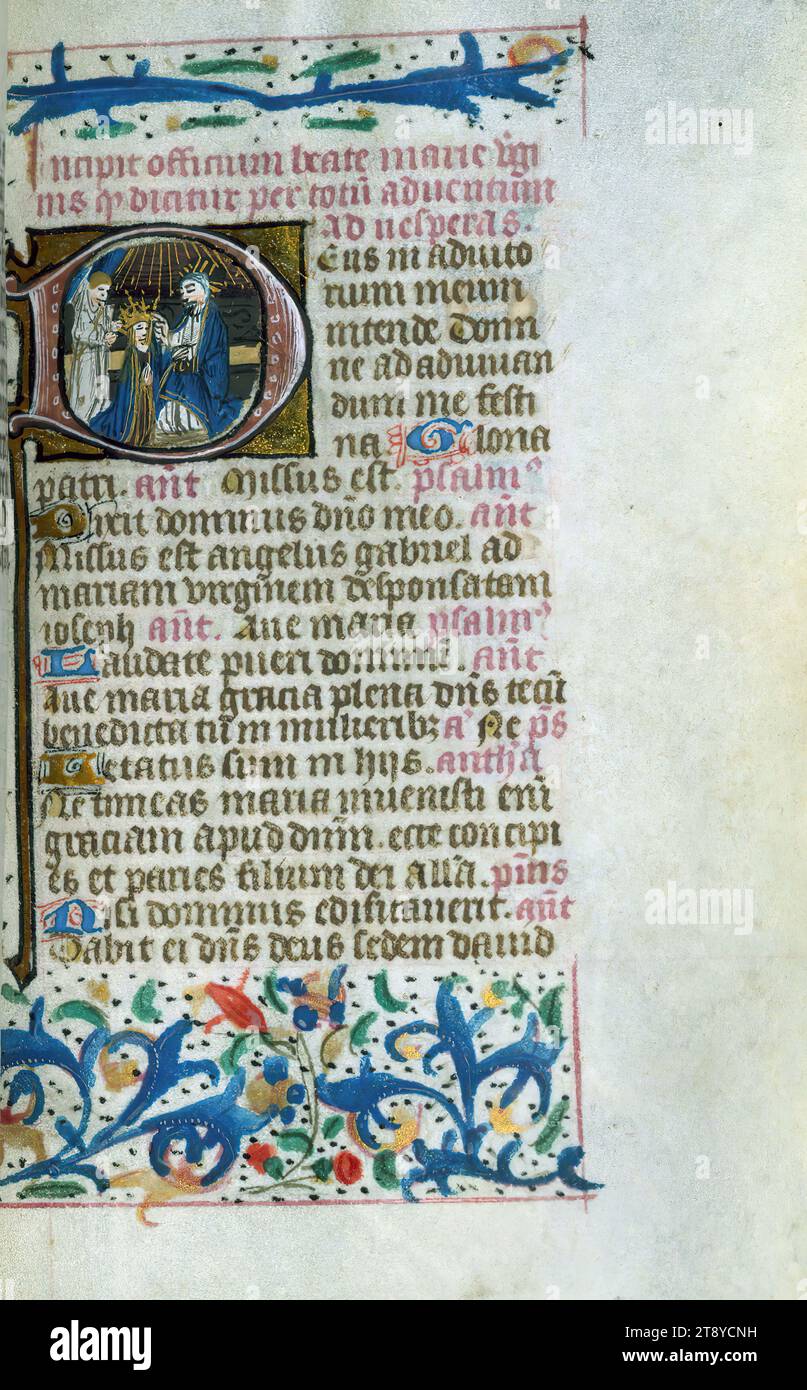 Incipit officium beate marie v̄gi
nis q̄ dicitur per totū adventum
ad vesperas.
Deus in adiuto
rium meum
intende Domi
ne ad adiuuan
dum me festi
na Gloria
patri. ant̄ Missus est. psalm9
Dixit dominus dn̄o meo. ant̄
Missus est angelus gabriel ad
mariam virginem desponsatam
ioseph ant̄. Aue maria psalm9
Laudate pueri dominū. ant̄
Aue maria gracia plena dn̄s tecū
benedicta tu in mulieribꝫ a' Ne p̄s
Letatus sum in hijs. anth'a
Ne timeas maria inuenisti enī
graciam apud dn̄m. ecce concipi
es et paries filium dei all'a. p̄ms
Nisi dominus edificauerit. ant̄
Dabit ei dn̄s deus sedem dauid
alamy
alamy
alamy
Image ID: 2T8YCNH
www.alamy.com